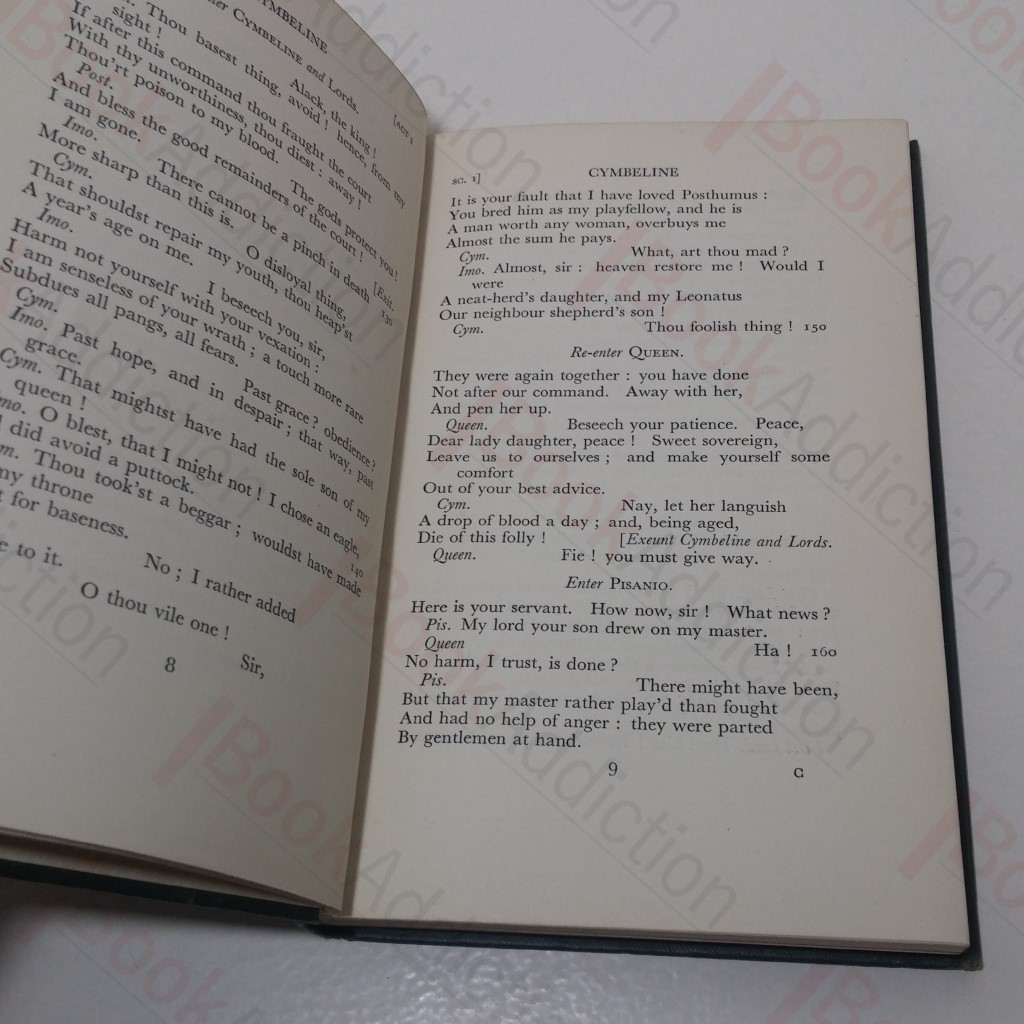 YMBELINE
[ACT I
Alack, the king !
nter CYMBELINE and Lords.
Thou basest thing, avoid ! hence, from my
sight !
If after this command thou fraught the court
With thy unworthiness, thou diest : away !
Thou'rt poison to my blood.
Post. The gods protect you !
And bless the good remainders of the court !
I am gone. [Exit.
Imo. There cannot be a pinch in death 130
More sharp than this is.
Cym. O disloyal thing,
That shouldst repair my youth, thou heap'st
A year's age on me.
Imo. I beseech you, sir,
Harm not yourself with your vexation :
I am senseless of your wrath ; a touch more rare
Subdues all pangs, all fears.
Cym. Past grace ? obedience ?
Imo. Past hope, and in despair ; that way, past
grace.
Cym. That mightst have had the sole son of my
queen !
mo. O blest, that I might not ! I chose an eagle,
did avoid a puttock. 140
m. Thou took'st a beggar ; wouldst have made
ny throne
t for baseness.
No ; I rather added
e to it.
O thou vile one !
Sir,
8
SC. I] CYMBELINE
It is your fault that I have loved Posthumus :
You bred him as my playfellow, and he is
A man worth any woman, overbuys me
Almost the sum he pays.
Cym. What, art thou mad ?
Imo. Almost, sir : heaven restore me ! Would I
were
A neat-herd's daughter, and my Leonatus
Our neighbour shepherd's son !
Cym. Thou foolish thing ! 150
Re-enter QUEEN.
They were again together : you have done
Not after our command. Away with her,
And pen her up.
Queen. Beseech your patience. Peace,
Dear lady daughter, peace ! Sweet sovereign,
Leave us to ourselves ; and make yourself some
comfort
Out of your best advice.
Cym. Nay, let her languish
A drop of blood a day ; and, being aged,
Die of this folly ! [Exeunt Cymbeline and Lords.
Queen. Fie ! you must give way.
Enter PISANIO.
Here is your servant. How now, sir ! What news ?
Pis. My lord your son drew on my master.
Queen Ha ! 160
No harm, I trust, is done ?
Pis. There might have been,
But that my master rather play'd than fought
And had no help of anger : they were parted
By gentlemen at hand.
9 C
BookAddiction